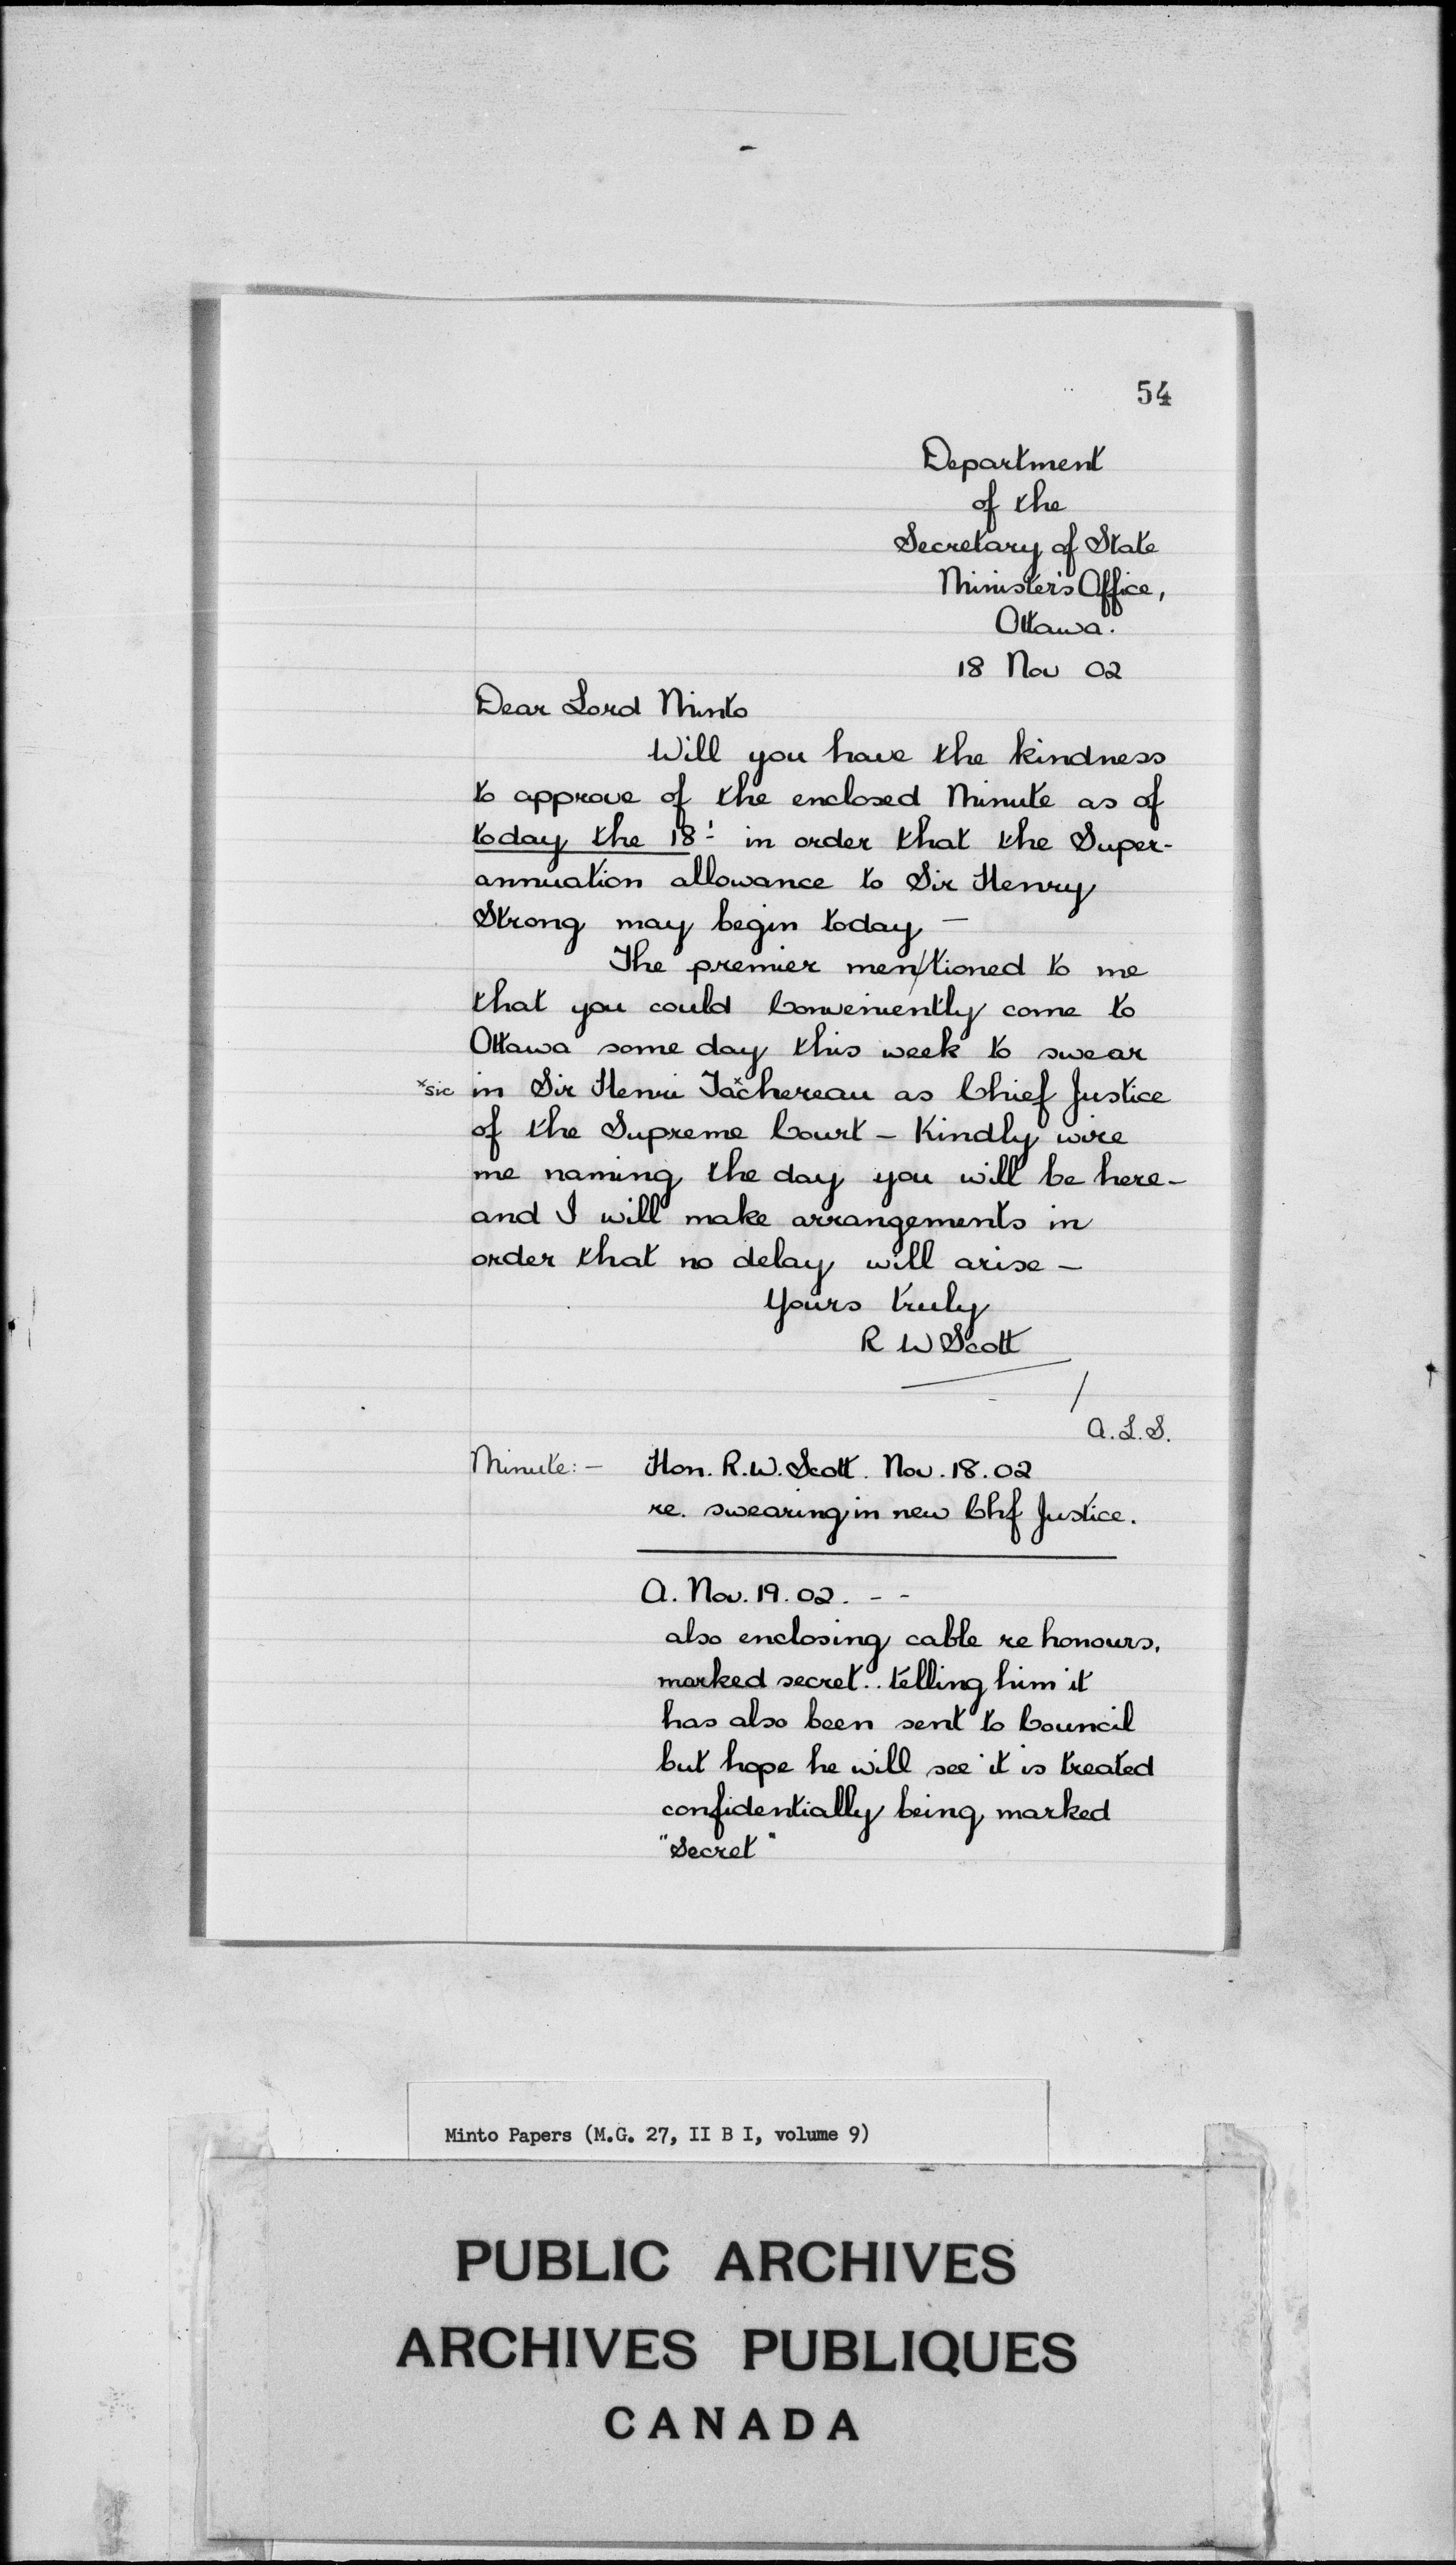 54
Department
of the
Secretary of State
Minister's Office,
Ottawa.
18 Nov 02
Dear Lord Minto
Will you have the kindness
to approve of the enclosed Minute as of
today the 18! in order that the Super-
annuation allowance to Sir Henry
Strong may begin today —
The premier men/tioned to me
that you could Conveniently come to
Ottawa some day this week to swear
*sic in Sir Henri Ta*chereau as Chief Justice
of the Supreme Court – Kindly wire
me naming the day you will be here –
and I will make arrangements in
order that no delay will arise –
Yours truly
R W Scott
/
A.L.S.
Minute: – Hon. R.W. Scott. Nov. 18. 02
re. swearing in new Chf Justice.
A. Nov. 19. 02. - -
also enclosing cable re honours,
marked secret.. telling him it
has also been sent to Council
but hope he will see it is treated
confidentially being marked
"Secret"
Minto Papers (M.G. 27, II B I, volume 9)
PUBLIC ARCHIVES
ARCHIVES PUBLIQUES
CANADA